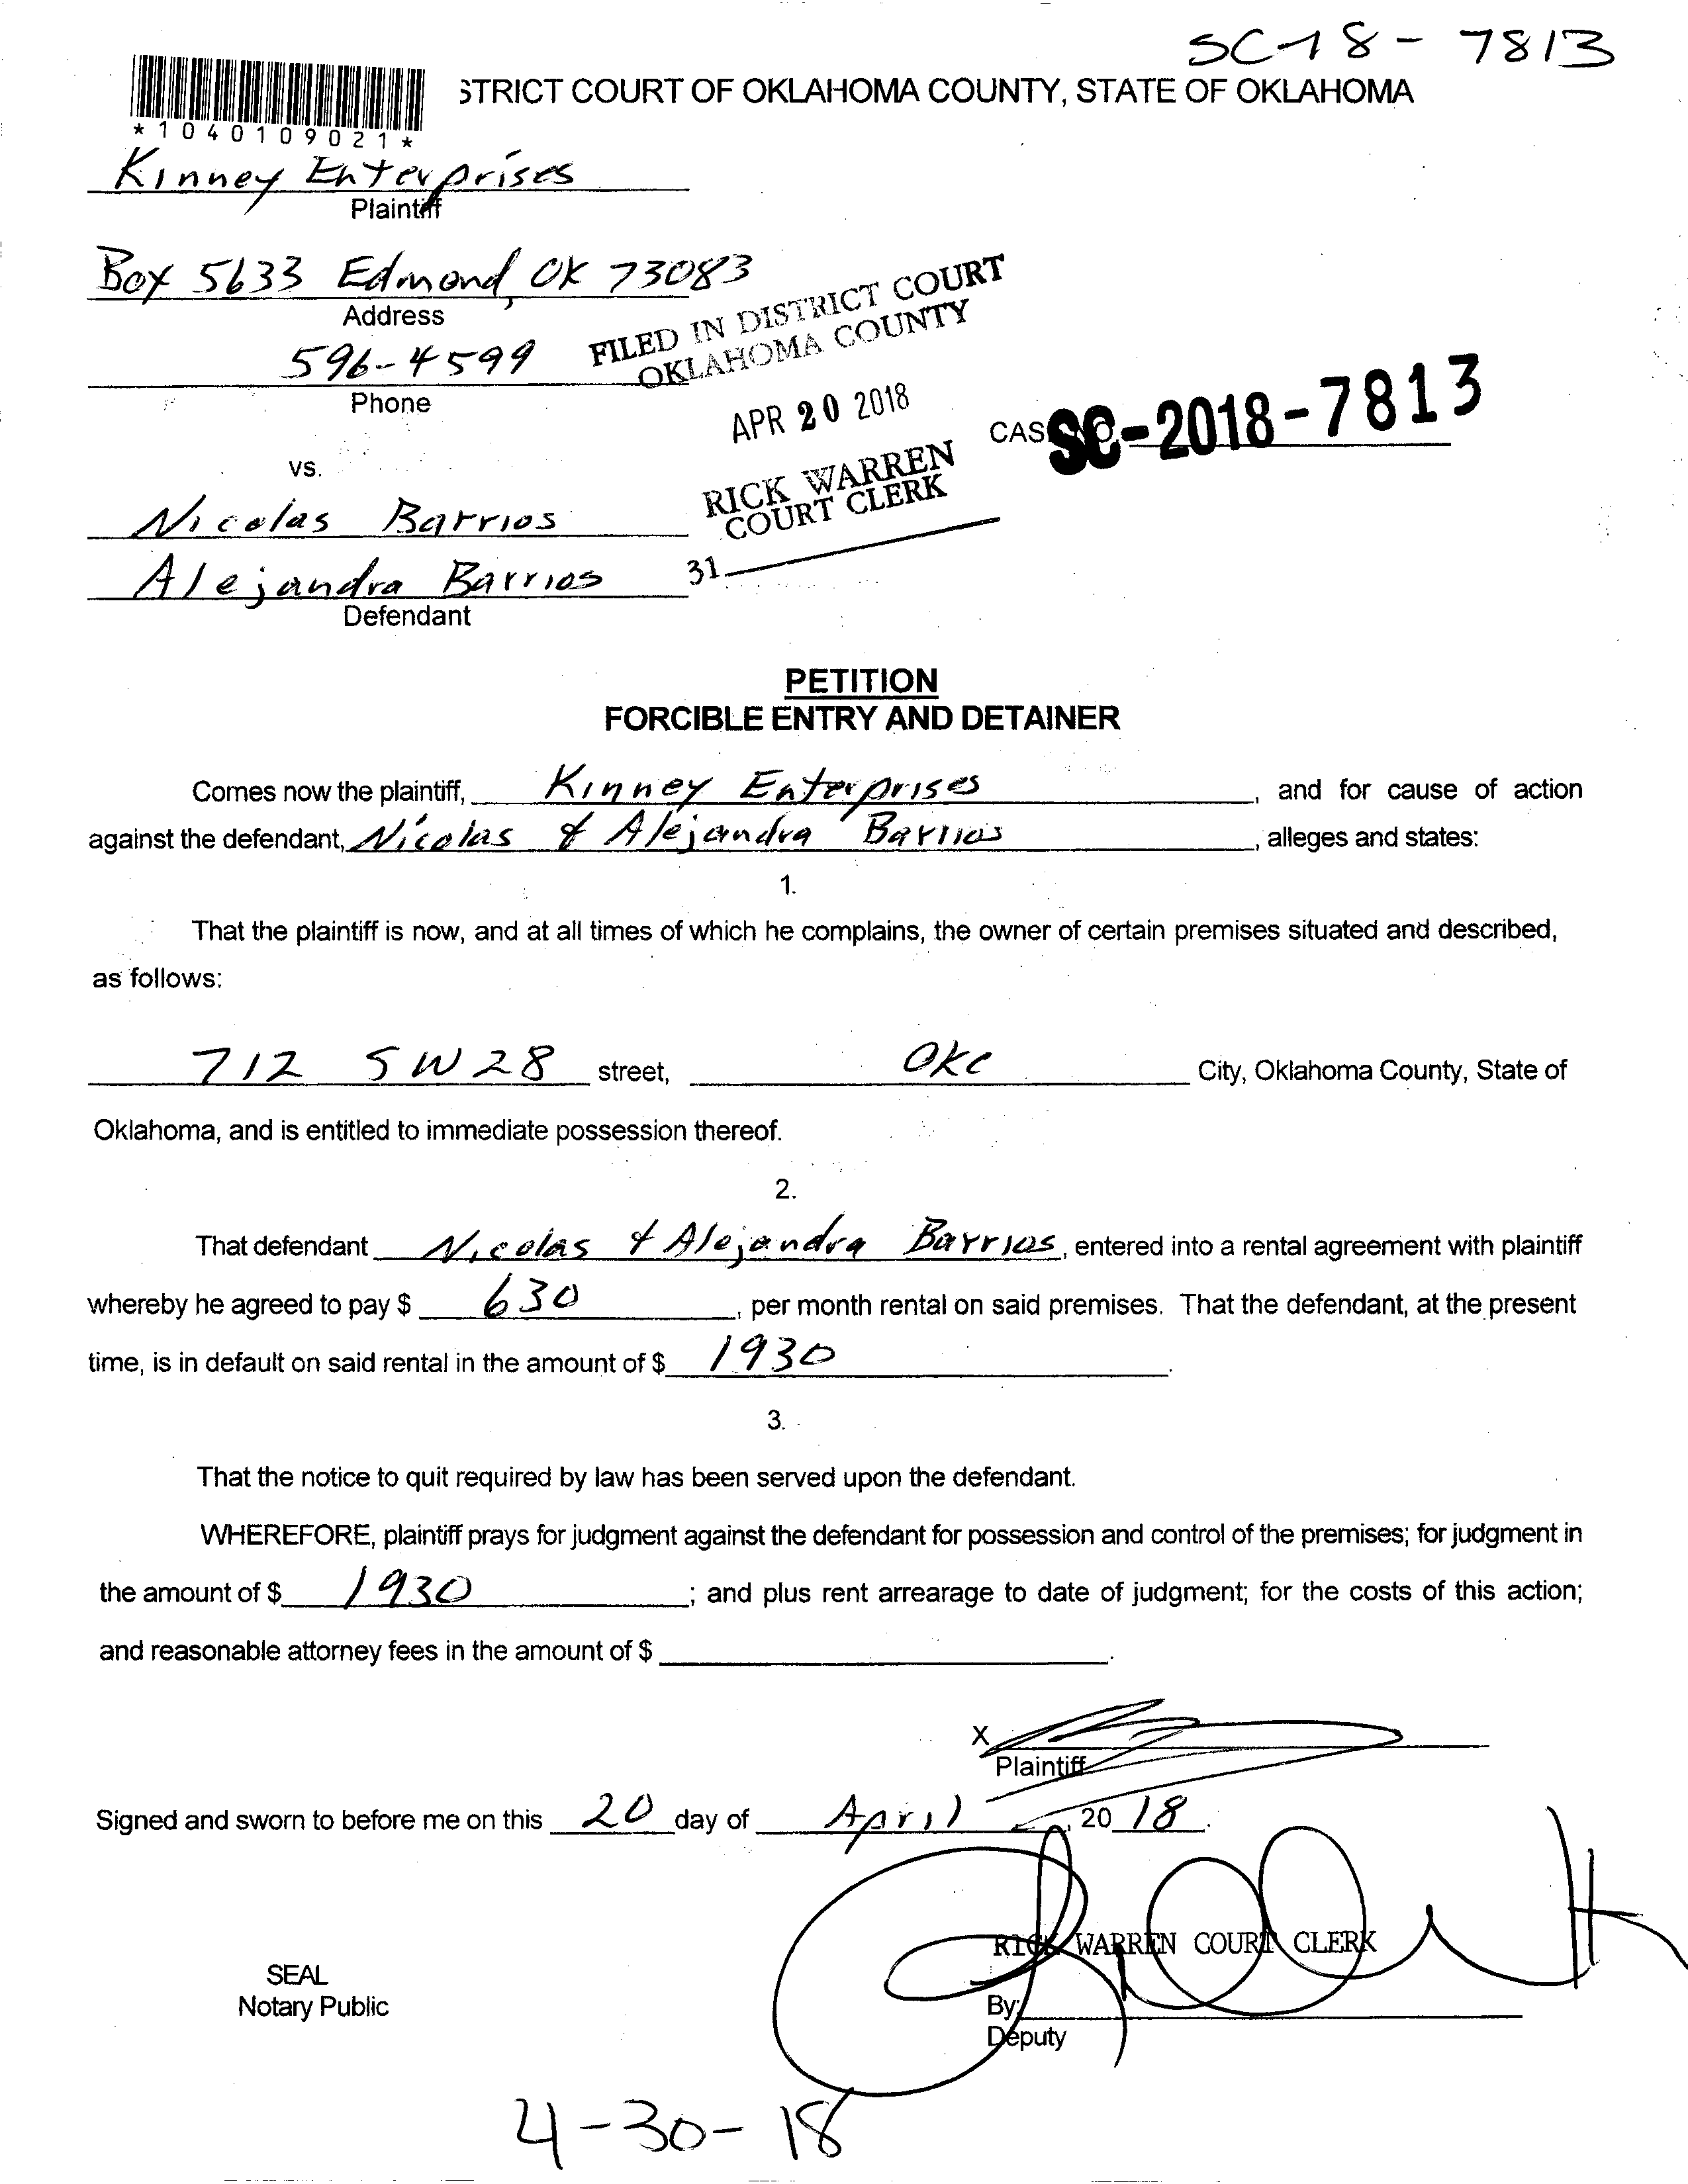 SC-18-7813
STRICT COURT OF OKLAHOMA COUNTY, STATE OF OKLAHOMA
*1040109021*
Kinney Enterprises
Plaintiff
Box 5633 Edmond, OK 73083
Address
596-4599
Phone
FILED IN DISTRICT COURT
OKLAHOMA COUNTY
APR 20 2018
RICK WARREN
COURT CLERK
31
CASE NO. SC-2018-7813
vs.
Nicolas Barrios
Alejandra Barrios
Defendant
PETITION
FORCIBLE ENTRY AND DETAINER
Comes now the plaintiff, Kinney Enterprises, and for cause of action
against the defendant, Nicolas & Alejandra Barrios, alleges and states:
1.
That the plaintiff is now, and at all times of which he complains, the owner of certain premises situated and described,
as follows:
712 SW 28 street, OKC City, Oklahoma County, State of
Oklahoma, and is entitled to immediate possession thereof.
2.
That defendant Nicolas & Alejandra Barrios, entered into a rental agreement with plaintiff
whereby he agreed to pay $ 630, per month rental on said premises. That the defendant, at the present
time, is in default on said rental in the amount of $ 1930.
3.
That the notice to quit required by law has been served upon the defendant.
WHEREFORE, plaintiff prays for judgment against the defendant for possession and control of the premises; for judgment in
the amount of $ 1930; and plus rent arrearage to date of judgment; for the costs of this action;
and reasonable attorney fees in the amount of $ .
X
Plaintiff
Signed and sworn to before me on this 20 day of April, 20 18.
RICK WARREN COURT CLERK
SEAL
Notary Public
By:
Deputy
4-30-18